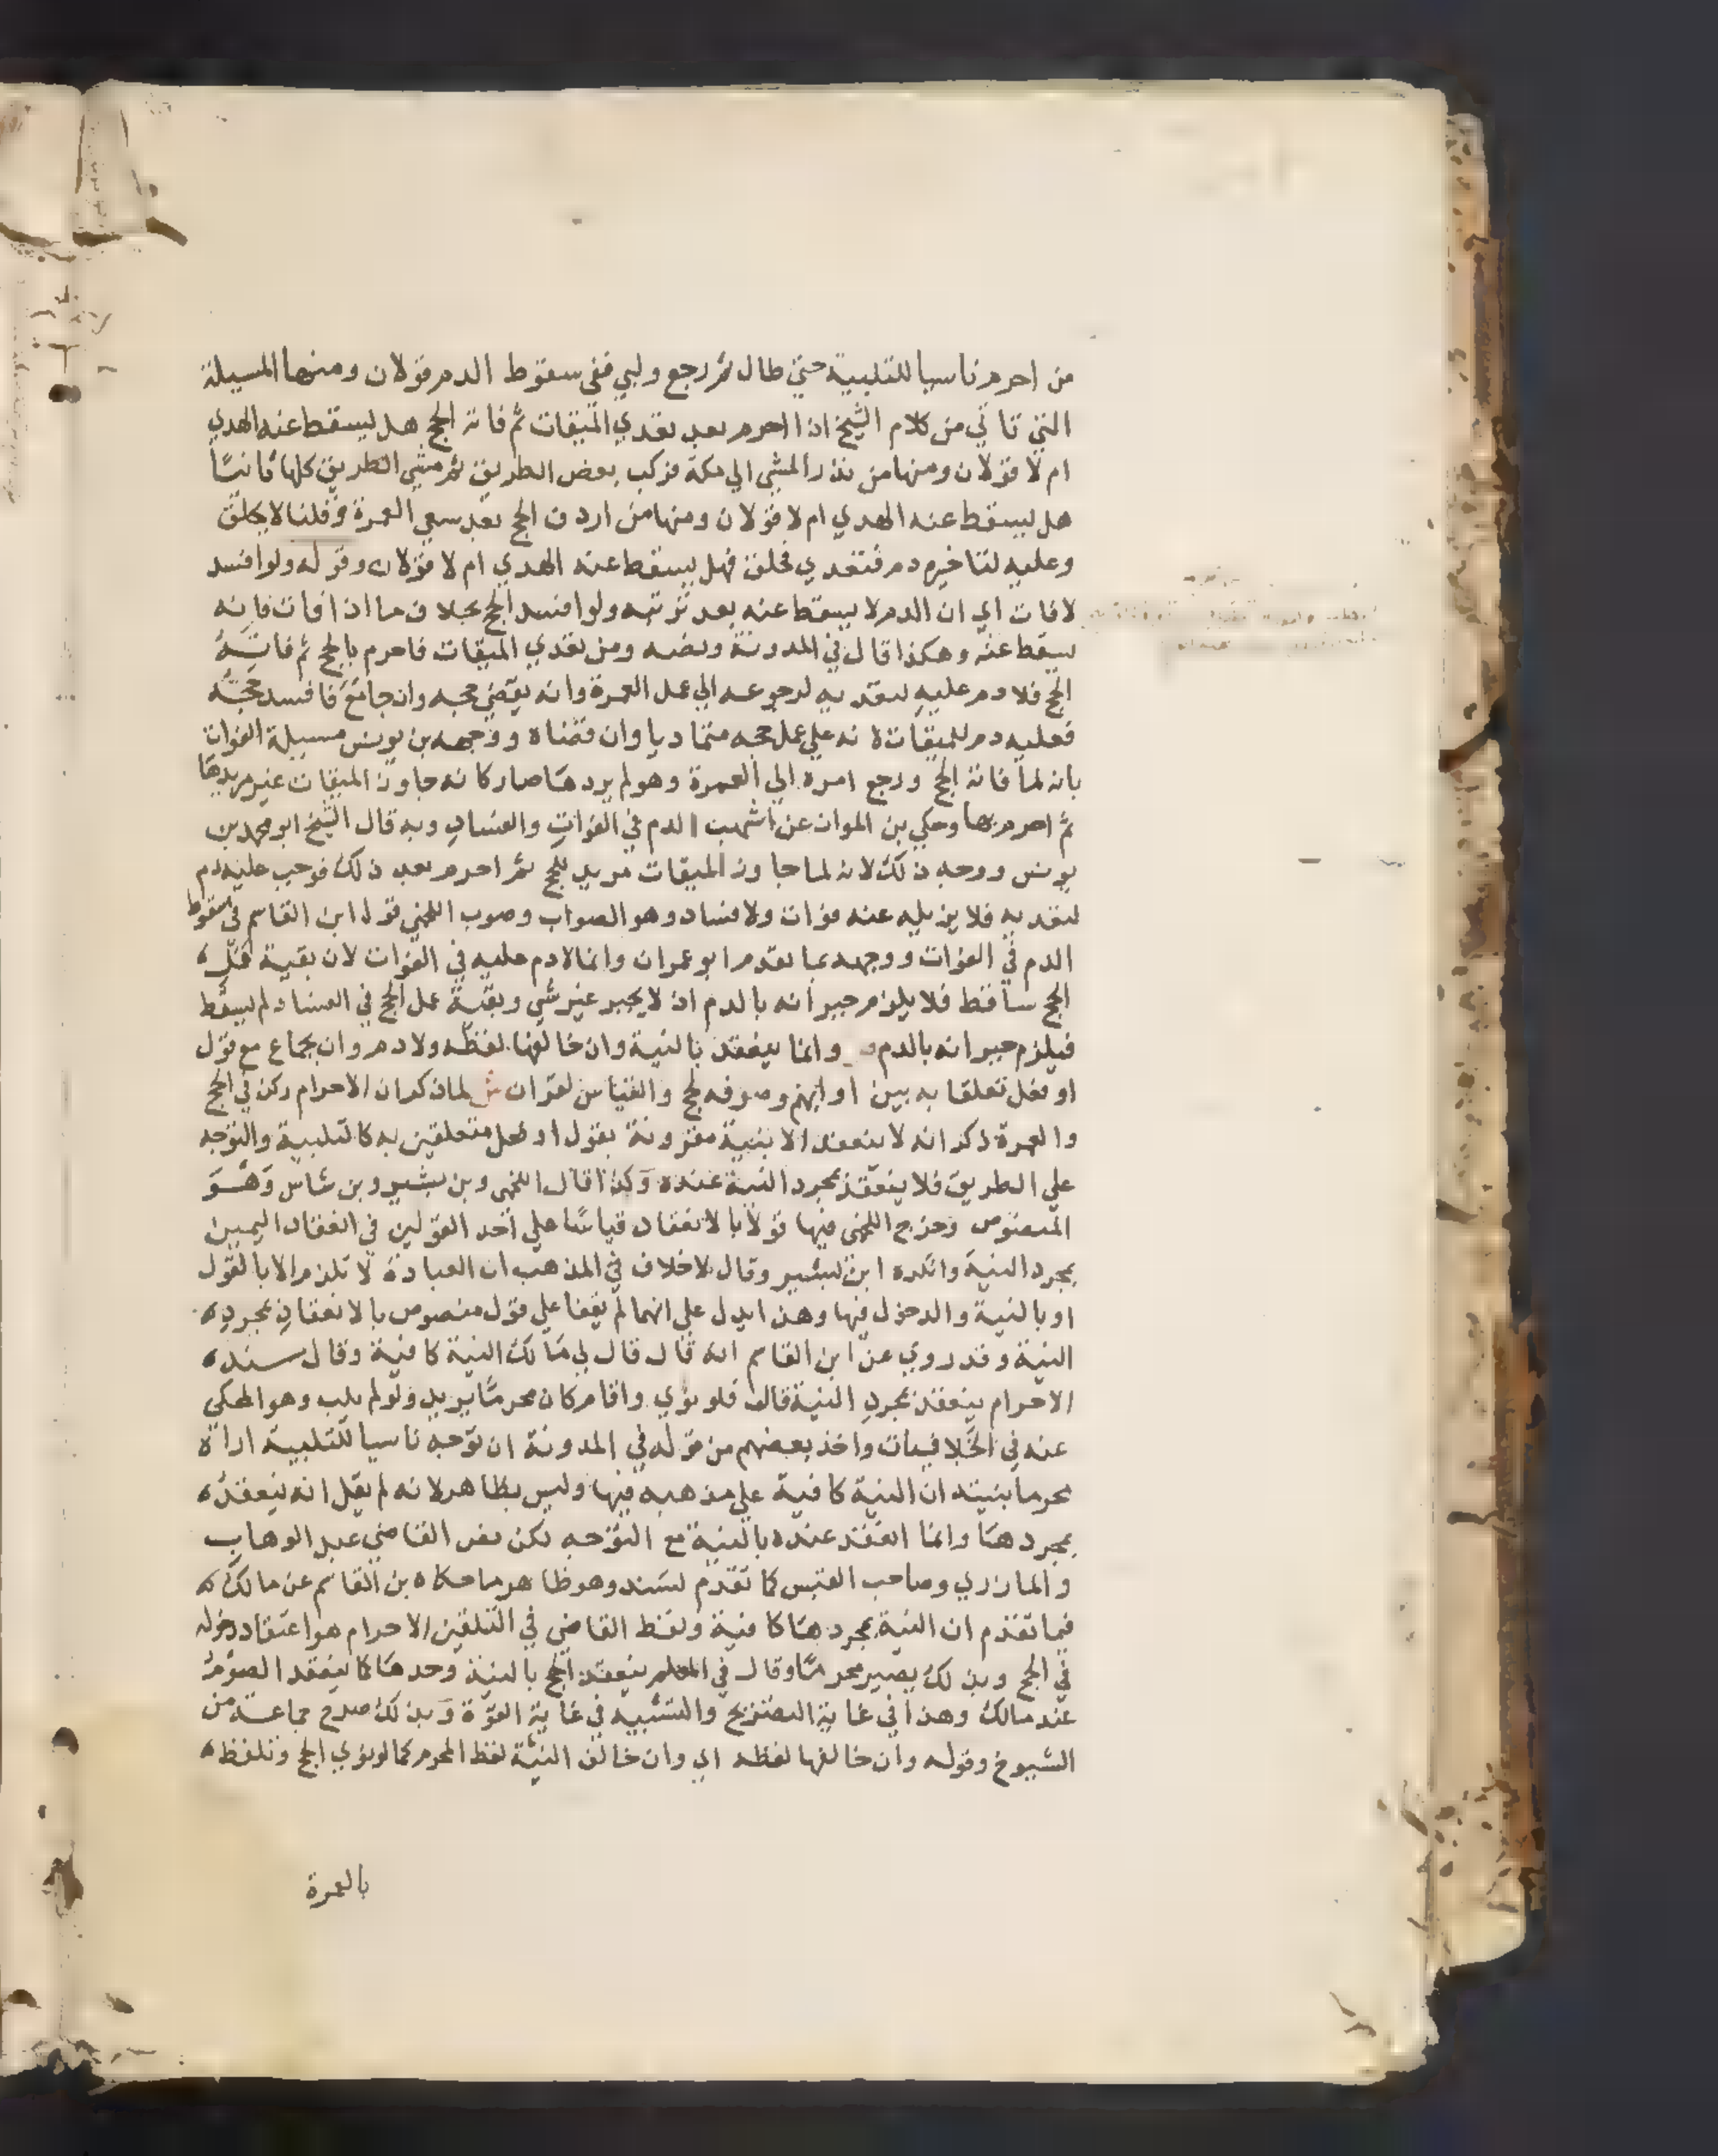 من احرم ناسيا للتلبية حتي طال ثم رجع ولبي ففي سقوط الدم قولان ومنها المسيلة
التي تاتي من كلام الشيخ اذا احرم بعد تعدي الميقات ثم فاته الحج هل يسقط عنه الهدي
ام لا قولان ومنها من نذر المشي الي مكة فركب بعض الطريق ثم مشي الطريق كلها ثانيًا
هل يسقط عنه الهدي ام لا قولان ومنها من اردف الحج بعد سعي العمرة وقلنا لا يحلق
وعليه لتاخيره دم فتعدي فحلق فهل يسقط عنه الهدي ام لا قولان وقوله ولو افسد
لا فات اي ان الدم لا يسقط عنه بعد ترتبه ولو افسد الحج بخلاف ما اذا فات فانه
يسقط عنه وهكذا قال في المدونة ونصه ومن تعدي الميقات فاحرم بالحج ثم فاته
الحج فلا دم عليه لتعديه لرجوعه الي عمل العمرة وانه يقضي حجه وان جامع فافسد حجه
فعليه دم للميقات لانه علي عمل حجه متماديا وان قضاه ووجهه بن يونس مسيلة الفوات
بانه لما فاته الحج ورجع امره الي العمرة وهو لم يردها صار كانه جاوز الميقات غير مريدها
ثم احرم بها وحكي بن المواز عن اشهب الدم في الفوات والفساد وبه قال الشيخ ابو محمد بن
يونس ووجه ذلك لانه لما جاوز الميقات مريد للحج ثم احرم بعد ذلك فوجب عليه دم
لتعديه فلا يزيله عنه فوات ولا فساد وهو الصواب وصوب اللخمي قول ابن القاسم في سقوط
الدم في الفوات ووجهه بما تقدم ابو عمران وانما لا دم عليه في الفوات لان بقية عمل
الحج ساقط فلا يلزم جبرانه بالدم اذ لا يجبر غير شي وبقية عمل الحج في الفساد لم يسقط
فيلزم جبرانه بالدم وانما ينعقد بالنية وان خالفها لفظه ولا دم وان بجماع مع قول
او فعل تعلقا به بين او ابهم وصرفه لحج والقياس لقران ش لما ذكر ان الاحرام ركن في الحج
والعمرة ذكر انه لا ينعقد الا بنية مقرونة بقول او فعل متعلقين به كالتلبية والتوجه
علي الطريق فلا ينعقد بمجرد النية عنده وكذا قال اللخمي وبن بشير وبن شاس وهو
المنصوص وخرج اللخمي فيها قولا بالانعقاد قياسًا علي احد القولين في انعقاد اليمين
بمجرد النية وانكره ابن بشير وقال لا خلاف في المذهب ان العبادة لا تلزم الا بالقول
او بالنية والدخول فيها وهذا يدل علي انهما لم يقفا علي قول منصوص بالانعقاد بمجرد
النية وقد روي عن ابن القاسم انه قال قال لي مالك النية كافية وقال سند
الاحرام ينعقد بمجرد النية قال فلو نوي واقام كان محرمًا يريد ولو لم يلب وهو المحكي
عنه في الخلافيات واخذ بعضهم من قوله في المدونة ان توجه ناسيا للتلبية اراه
محرما بنيته ان النية كافية علي مذهبه فيها وليس بظاهر لانه لم يقل انه ينعقد
بمجردها وانما انعقد عنده بالنية مع التوجه لكن نص القاضي عبد الوهاب
والمازري وصاحب القبس كما تقدم لسند وهو ظاهر ما حكاه بن القاسم عن مالك
فيما تقدم ان النية بمجردها كافية ولفظ القاضي في التلقين الاحرام هو اعتقاد دخوله
في الحج وبذلك يصير محرمًا وقال في المعلم ينعقد الحج بالنية وحدها كما ينعقد الصوم
عند مالك وهذا في غاية التصريح والتشبيه في غاية القوة وبذلك صرح جماعة من
الشيوخ وقوله وان خالفها لفظه اي وان خالف النية لفظ المحرم كما لو نوي الحج وتلفظ
بالعمرة